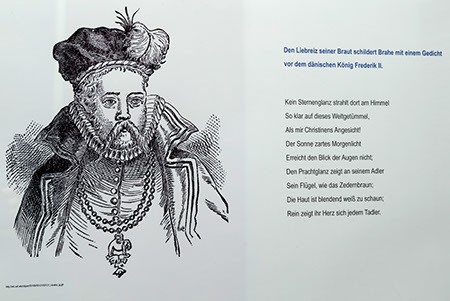 Den Liebreiz seiner Braut schildert Brahe mit einem Gedicht
vor dem dänischen König Frederik II.
Kein Sternenglanz strahlt dort am Himmel
So klar auf dieses Weltgetümmel,
Als mir Christinens Angesicht!
Der Sonne zartes Morgenlicht
Erreicht den Blick der Augen nicht;
Den Prachtglanz zeigt an seinem Adler
Sein Flügel, wie das Zedernbraun;
Die Haut ist blendend weiß zu schaun;
Rein zeigt ihr Herz sich jedem Tadler.